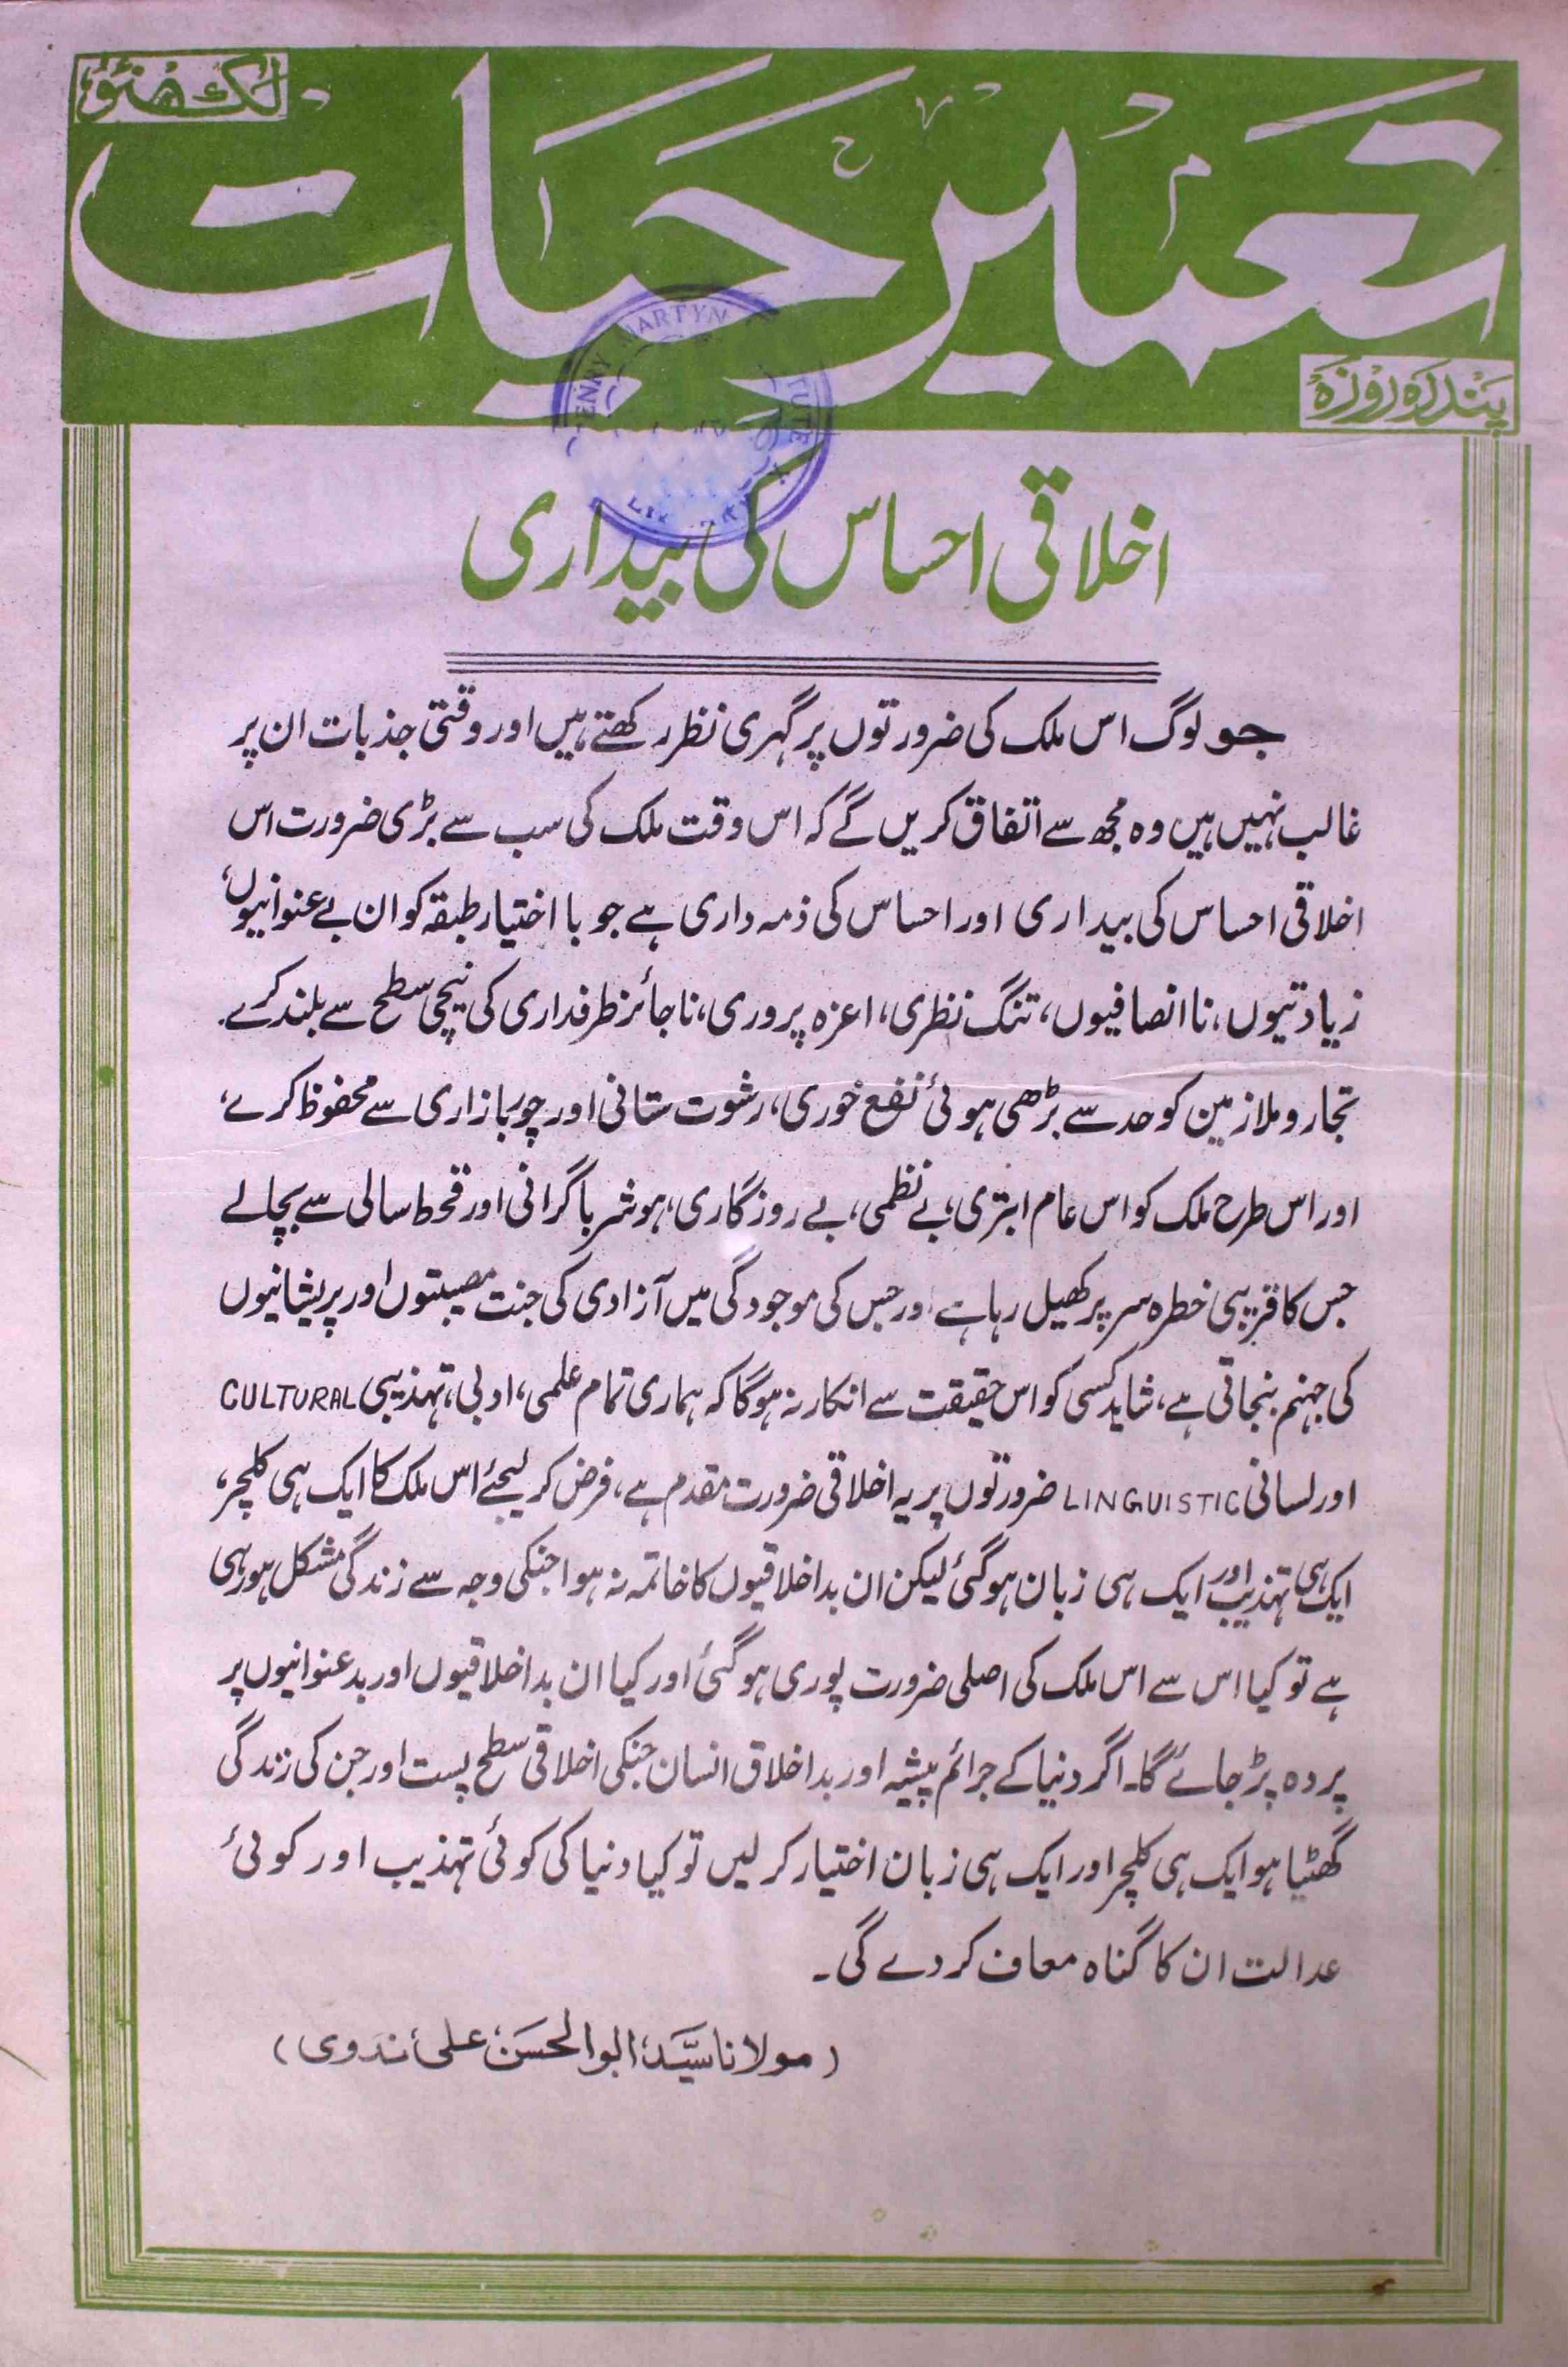 لکھنؤ
تعمیر حیات
پندرہ روزہ
HENRY MARTYN
اخلاقی احساس کی بیداری
جو لوگ اس ملک کی ضرورتوں پر گہری نظر رکھتے ہیں اور وقتی جذبات ان پر
غالب نہیں ہیں وہ مجھ سے اتفاق کریں گے کہ اس وقت ملک کی سب سے بڑی ضرورت اس
اخلاقی احساس کی بیداری اور احساس کی ذمہ داری ہے جو با اختیار طبقہ کو ان بے عنوانیوں،
زیادتیوں، نا انصافیوں، تنگ نظری، اعزہ پروری، ناجائز طرفداری کی نیچی سطح سے بلند کرے۔
تجار و ملازمین کو حد سے بڑھی ہوئی نفع خوری، رشوت ستانی اور چور بازاری سے محفوظ کرے،
اور اس طرح ملک کو اس عام ابتری، بے نظمی، بے روزگاری، ہوشربا گرانی اور قحط سالی سے بچالے
جس کا قریبی خطرہ سر پر کھیل رہا ہے اور جس کی موجودگی میں آزادی کی جنت مصیبتوں اور پریشانیوں
کی جہنم بنجاتی ہے، شاید کسی کو اس حقیقت سے انکار نہ ہوگا کہ ہماری تمام علمی، ادبی، تہذیبی CULTURAL
اور لسانی LINGUISTIC ضرورتوں پر یہ اخلاقی ضرورت مقدم ہے، فرض کر لیجئے اس ملک کا ایک ہی کلچر،
ایک ہی تہذیب اور ایک ہی زبان ہوگئی لیکن ان بداخلاقیوں کا خاتمہ نہ ہوا جنکی وجہ سے زندگی مشکل ہو رہی
ہے تو کیا اس سے اس ملک کی اصلی ضرورت پوری ہوگئی اور کیا ان بداخلاقیوں اور بدعنوانیوں پر
پردہ پڑ جائے گا۔ اگر دنیا کے جرائم پیشہ اور بداخلاق انسان جنکی اخلاقی سطح پست اور جن کی زندگی
گھٹیا ہو ایک ہی کلچر اور ایک ہی زبان اختیار کر لیں تو کیا دنیا کی کوئی تہذیب اور کوئی
عدالت ان کا گناہ معاف کردے گی۔
(مولانا سیّد ابوالحسن علی ندوی)